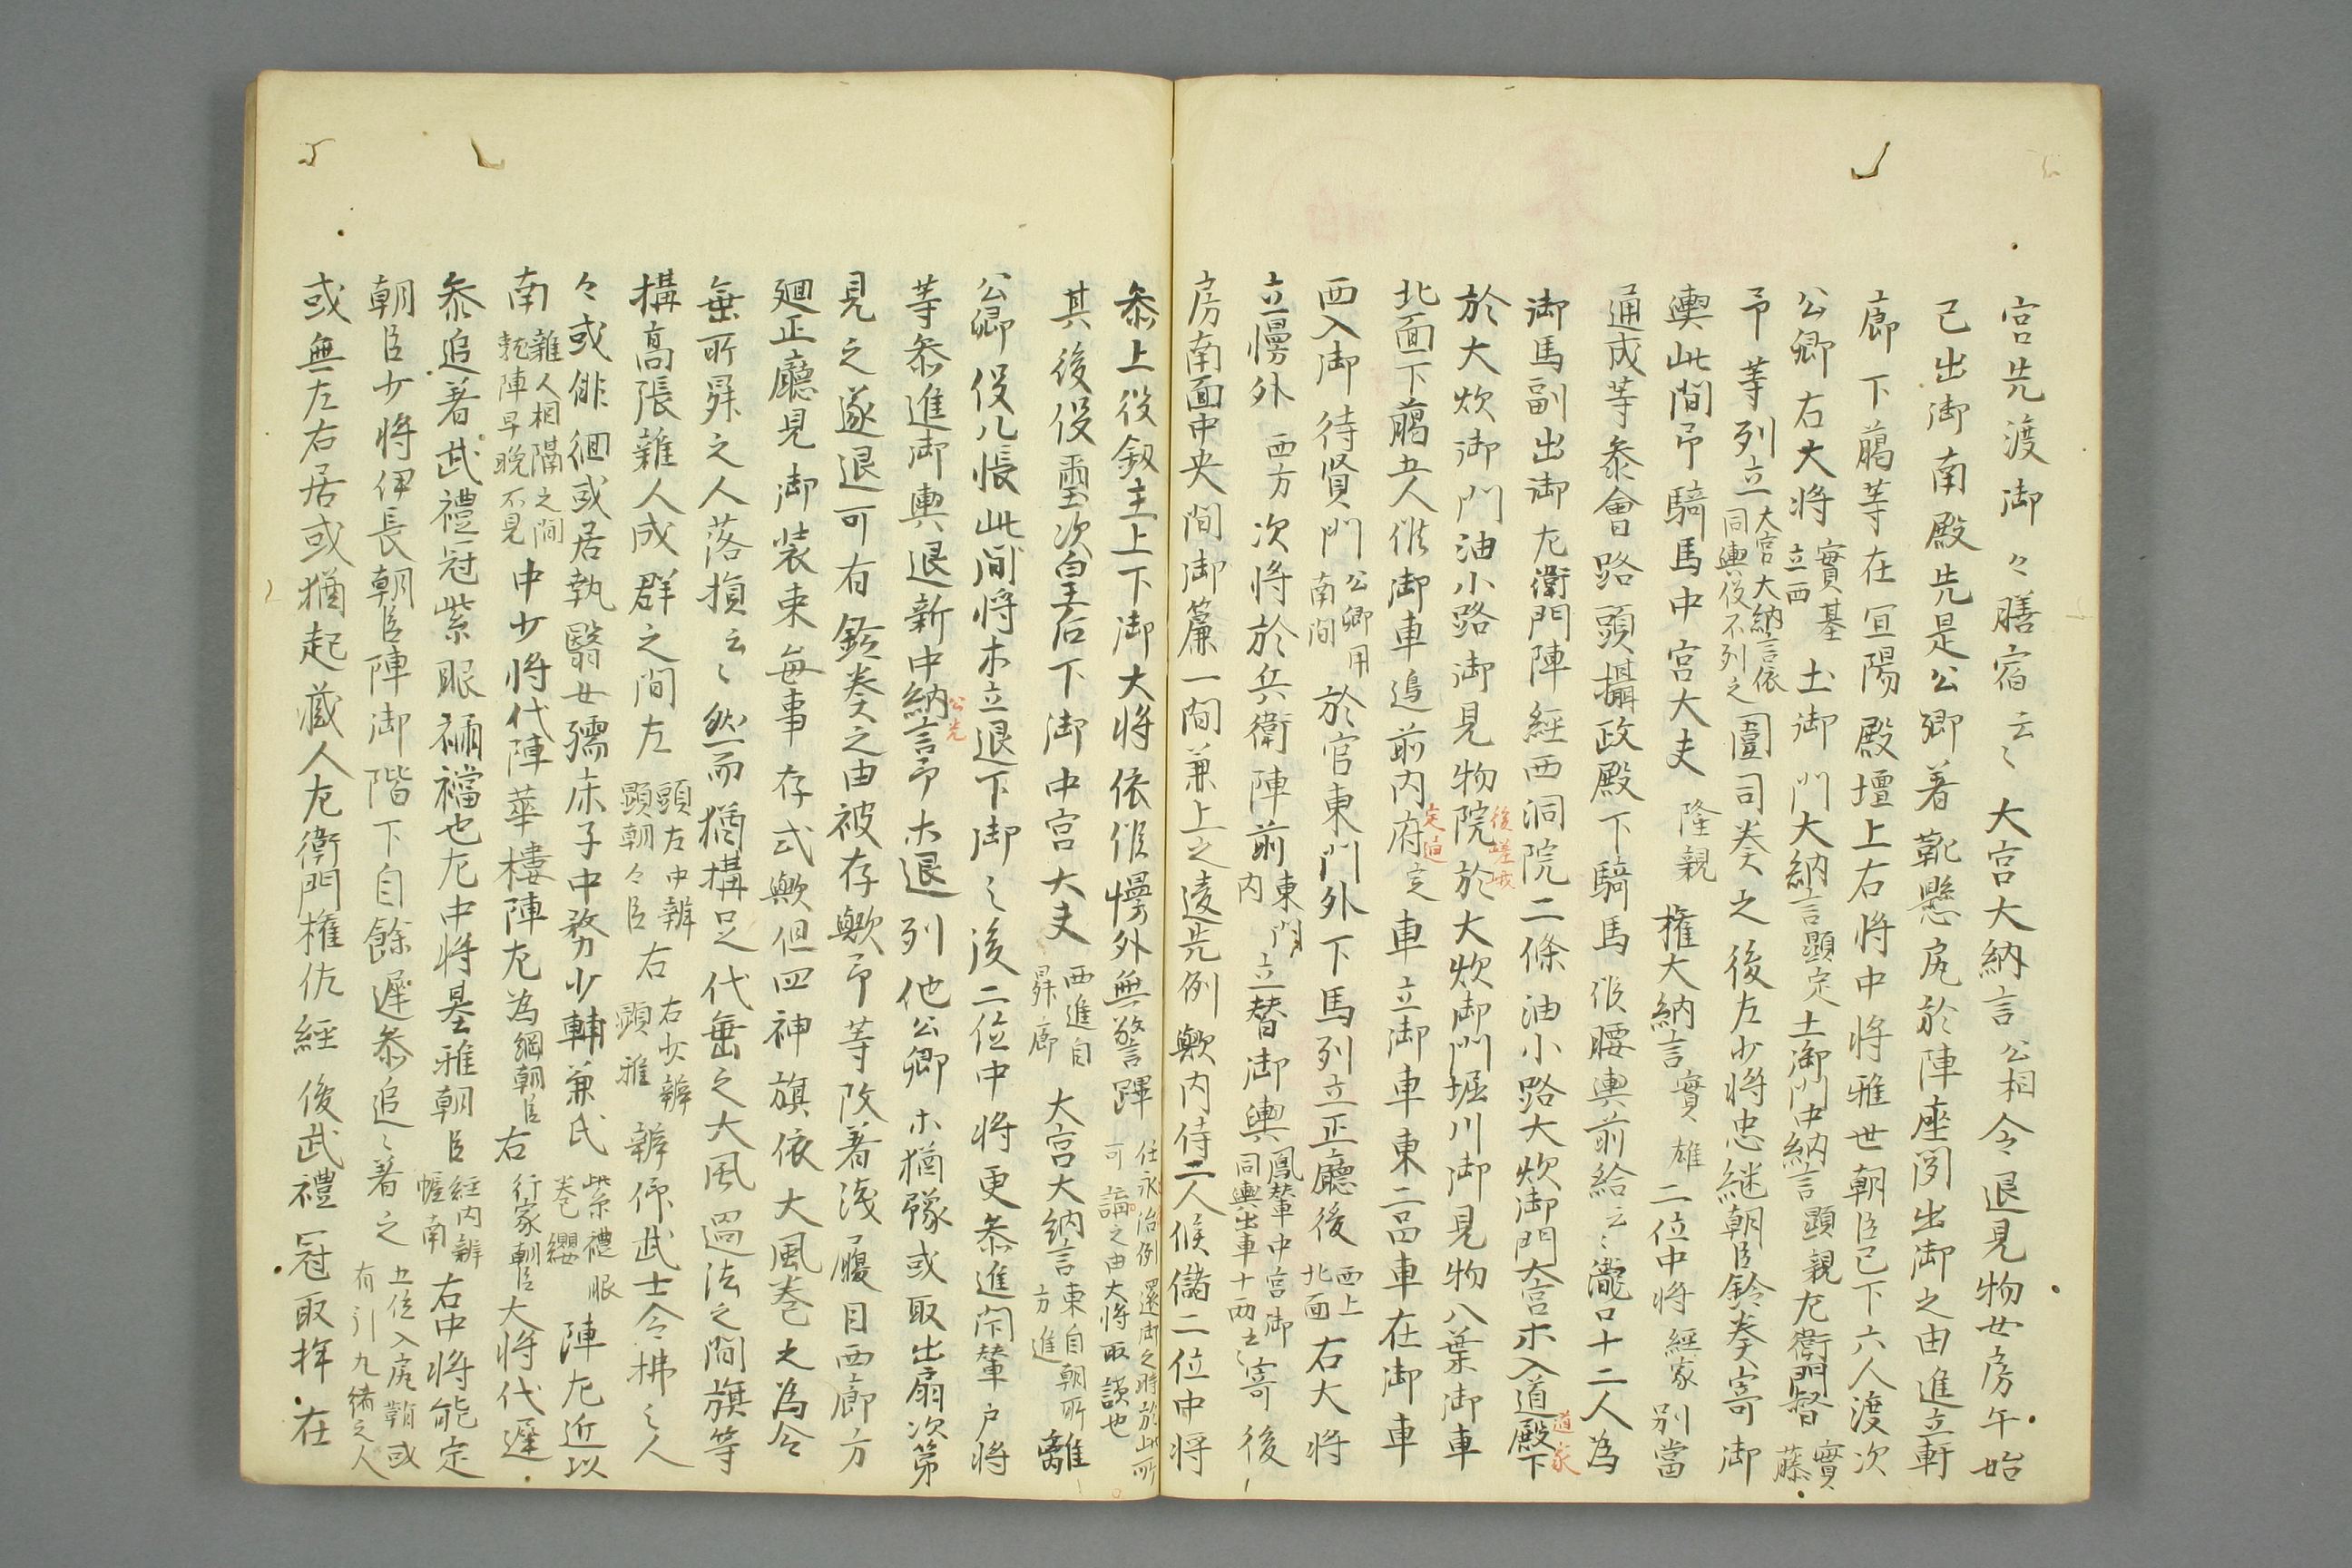 宮先渡御々膳宿云々大宮大納言公相令退見物女房午始
已出御南殿先是公卿着靴懸尻於陣座聞出御之由進立軒
廊下﨟等在宜陽殿壇上右将中将雅世朝臣已下六人渡次
公卿右大将實基立西土御門大納言顕定土御門中納言顕親左衛門督實藤
予等列立大宮大納言依同輿後不列之圍司奏之後左少将忠継朝臣鈴奏寄御
輿此間予騎馬中宮大夫隆親權大納言實雄二位中将經家別當
通成等参會路頭攝政殿下騎馬候腰輿前給云々瀧口十二人為
御馬副出御左衛門陣經西洞院二條油小路大炊御門大宮木入道殿下道家
於大炊御門油小路御見物院後嵯峨於大炊御門堀川御見物八葉御車
北面下﨟五人候御車追前内府定車立御車東二品車在御車
西入御待賢門公卿用南間於官東門外下馬列立正廳後西上北面右大将
立幔外西方次将於兵衛陣前東門内立替御輿鳳輦中宮御同輿出車十両云々寄後
房南面中央間御簾一間兼上之違先例歟内侍二人候儲二位中将
参上役釼主上下御大将依候幔外無警蹕任永治例還御之時於此所可論之由大将取談也
其後役璽次皇后下御中宮大夫西進自舜廊大宮大納言東自朝所方進離
公卿役几帳此間将木立退下御々後二位中将更参進開輦戸将
等参進御輿退新中納言公光予木退列他公卿木猶豫或取出扇次第
見之遂退可有鈴奏之由被存歟予等改着浅履目西廊方
廻正廳見御装束毎事存式歟但四神旗依大風巻之為令
無所舜之人落損云々然而猶構足代垂之大風過法之間旗等
構高張雜人成群之間左頭左中辨顕朝々臣右右少辨顕雅辨仰武士令拂々人
々或俳徊或居執翳女孺床子中務少輔兼氏紫禮服巻纓陣左近以
南雜人相隔之間乾陣早晩不見中少将代陣華樓陣左為綱朝臣右行家朝臣大将代遅
参追着武禮冠紫眼裲襠也左中将基雅朝臣經内辨幄南右中将能定
朝臣少将伊長朝臣陣御階下自餘遅参追々着之五位入尻鞘或有引九緒之人
或無左右居或猶起蔵人左衛門權佐經後武禮冠取桙在